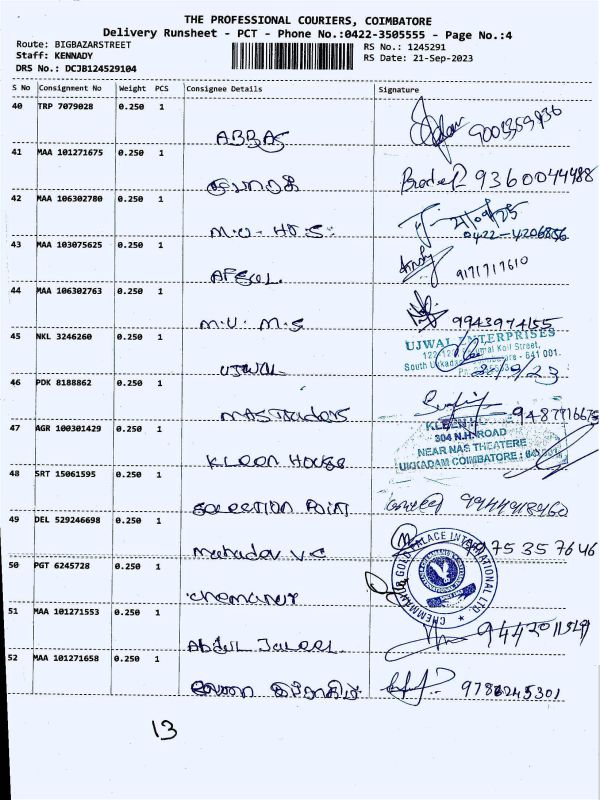 THE PROFESSIONAL COURIERS, COIMBATORE
Delivery Runsheet - PCT - Phone No.:0422-3505555 - Page No.:4
Route: BIGBAZARSTREET
Staff: KENNADY
DRS No.: DCJB124529104
RS No.: 1245291
RS Date: 21-Sep-2023
S No Consignment No Weight PCS Consignee Details Signature
40 TRP 7079028 0.250 1
ABBAS
41 MAA 101271675 0.250 1
9360044488
42 MAA 106302780 0.250 1
M.U. H.S.
0422-4206856
43 MAA 103075625 0.250 1
AFSUL.
9171717610
44 MAA 106302763 0.250 1
M.U. M.S
9943974155
45 NKL 3246260 0.250 1
UJWAL ENTERPRISES
Koil Street,
641 001.
UJWAL
21/9/23
46 PDK 8188862 0.250 1
MAS Traders
9487716675
47 AGR 100301429 0.250 1
KLEEN
304 N.H. ROAD
NEAR NAS THEATERE
UKKADAM COIMBATORE : 641001
KLEEN HOUSE
48 SRT 15061595 0.250 1
SELECTION POINT
9944918460
49 DEL 529246698 0.250 1
Mahadev V.C
75357646
50 PGT 6245728 0.250 1
CHEMMANUR GOLD PALACE INTERNATIONAL LTD.
Chemanur
51 MAA 101271553 0.250 1
Abdul Jaleel
52 MAA 101271658 0.250 1
9786245301
13